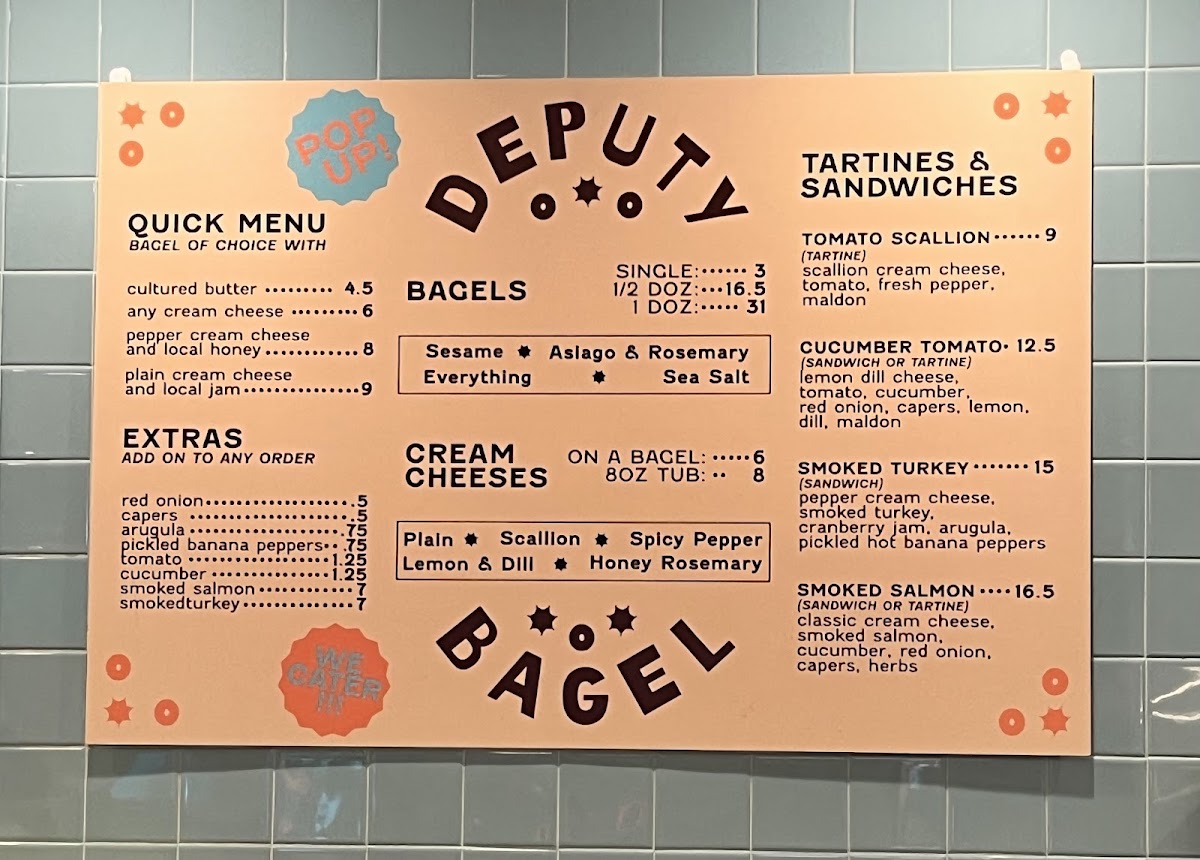 POP
UP!
DEPUTY
QUICK MENU
BAGEL OF CHOICE WITH
cultured butter ......... 4.5
any cream cheese ......... 6
pepper cream cheese
and local honey ............ 8
plain cream cheese
and local jam ............... 9
EXTRAS
ADD ON TO ANY ORDER
red onion .................. .5
capers .................. .5
arugula .................. .75
pickled banana peppers .. .75
tomato .................. 1.25
cucumber ............... 1.25
smoked salmon ............ 7
smokedturkey .............. 7
WE
CATER
!!!
BAGELS
SINGLE: ...... 3
1/2 DOZ: ...16.5
1 DOZ: ..... 31
Sesame Asiago & Rosemary
Everything Sea Salt
CREAM
CHEESES
ON A BAGEL: ..... 6
8OZ TUB: .. 8
Plain Scallion Spicy Pepper
Lemon & Dill Honey Rosemary
BAGEL
TARTINES &
SANDWICHES
TOMATO SCALLION ...... 9
(TARTINE)
scallion cream cheese,
tomato, fresh pepper,
maldon
CUCUMBER TOMATO . 12.5
(SANDWICH OR TARTINE)
lemon dill cheese,
tomato, cucumber,
red onion, capers, lemon,
dill, maldon
SMOKED TURKEY ....... 15
(SANDWICH)
pepper cream cheese,
smoked turkey,
cranberry jam, arugula,
pickled hot banana peppers
SMOKED SALMON .... 16.5
(SANDWICH OR TARTINE)
classic cream cheese,
smoked salmon,
cucumber, red onion,
capers, herbs